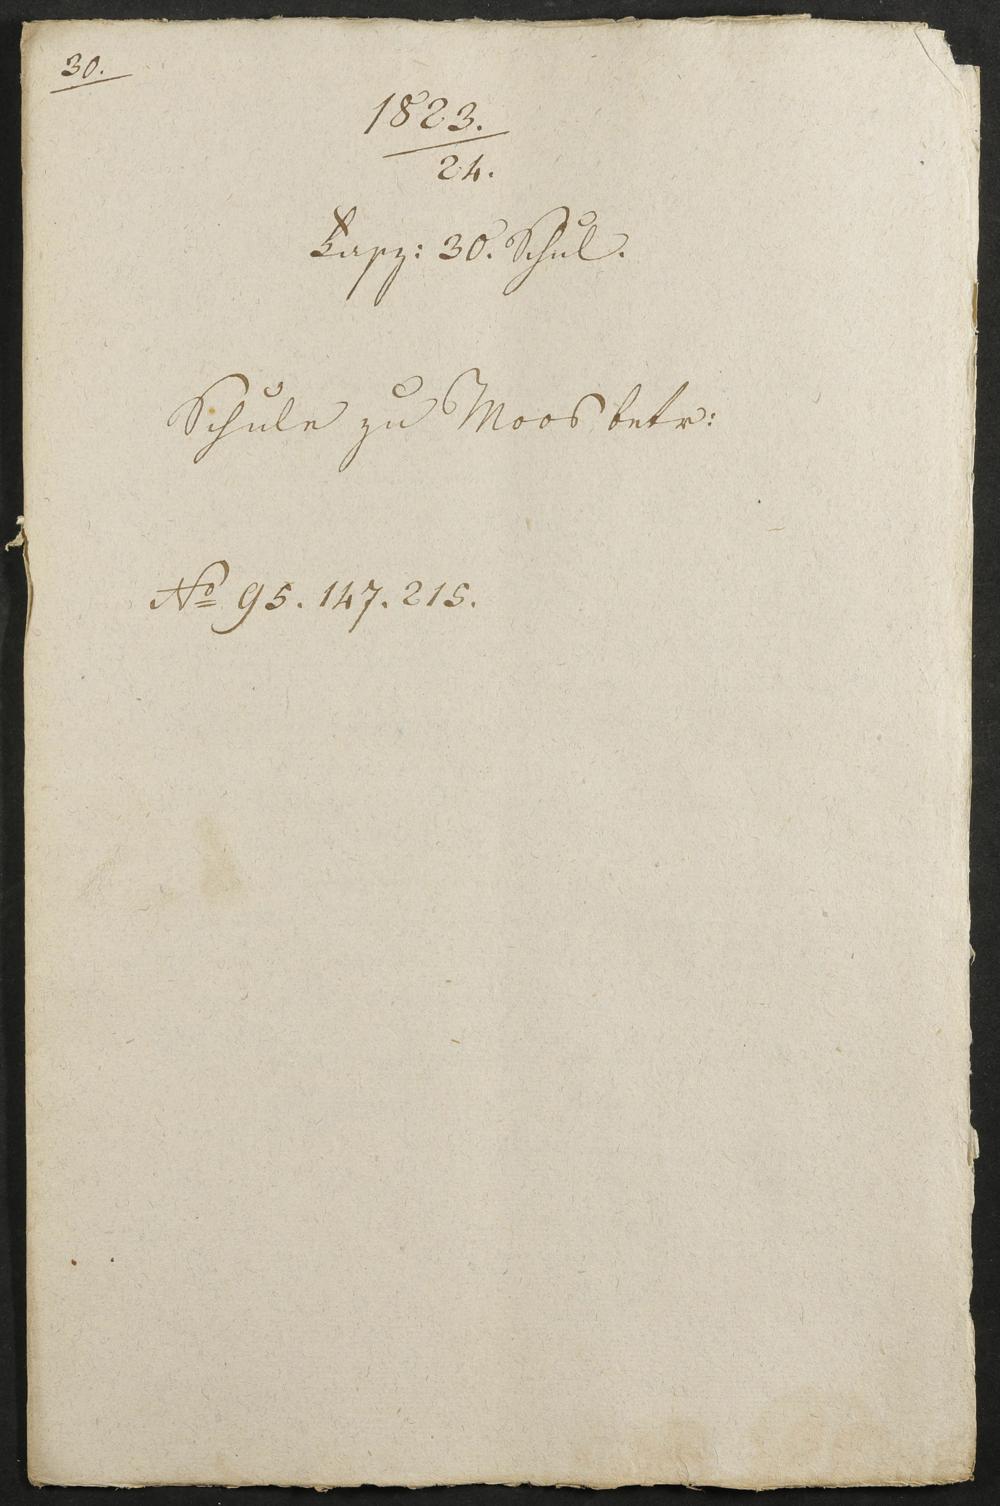 30.
1823.
24.
Kapz: 30. Schul.
Schule zu Moos betr:
No 95. 147. 215.